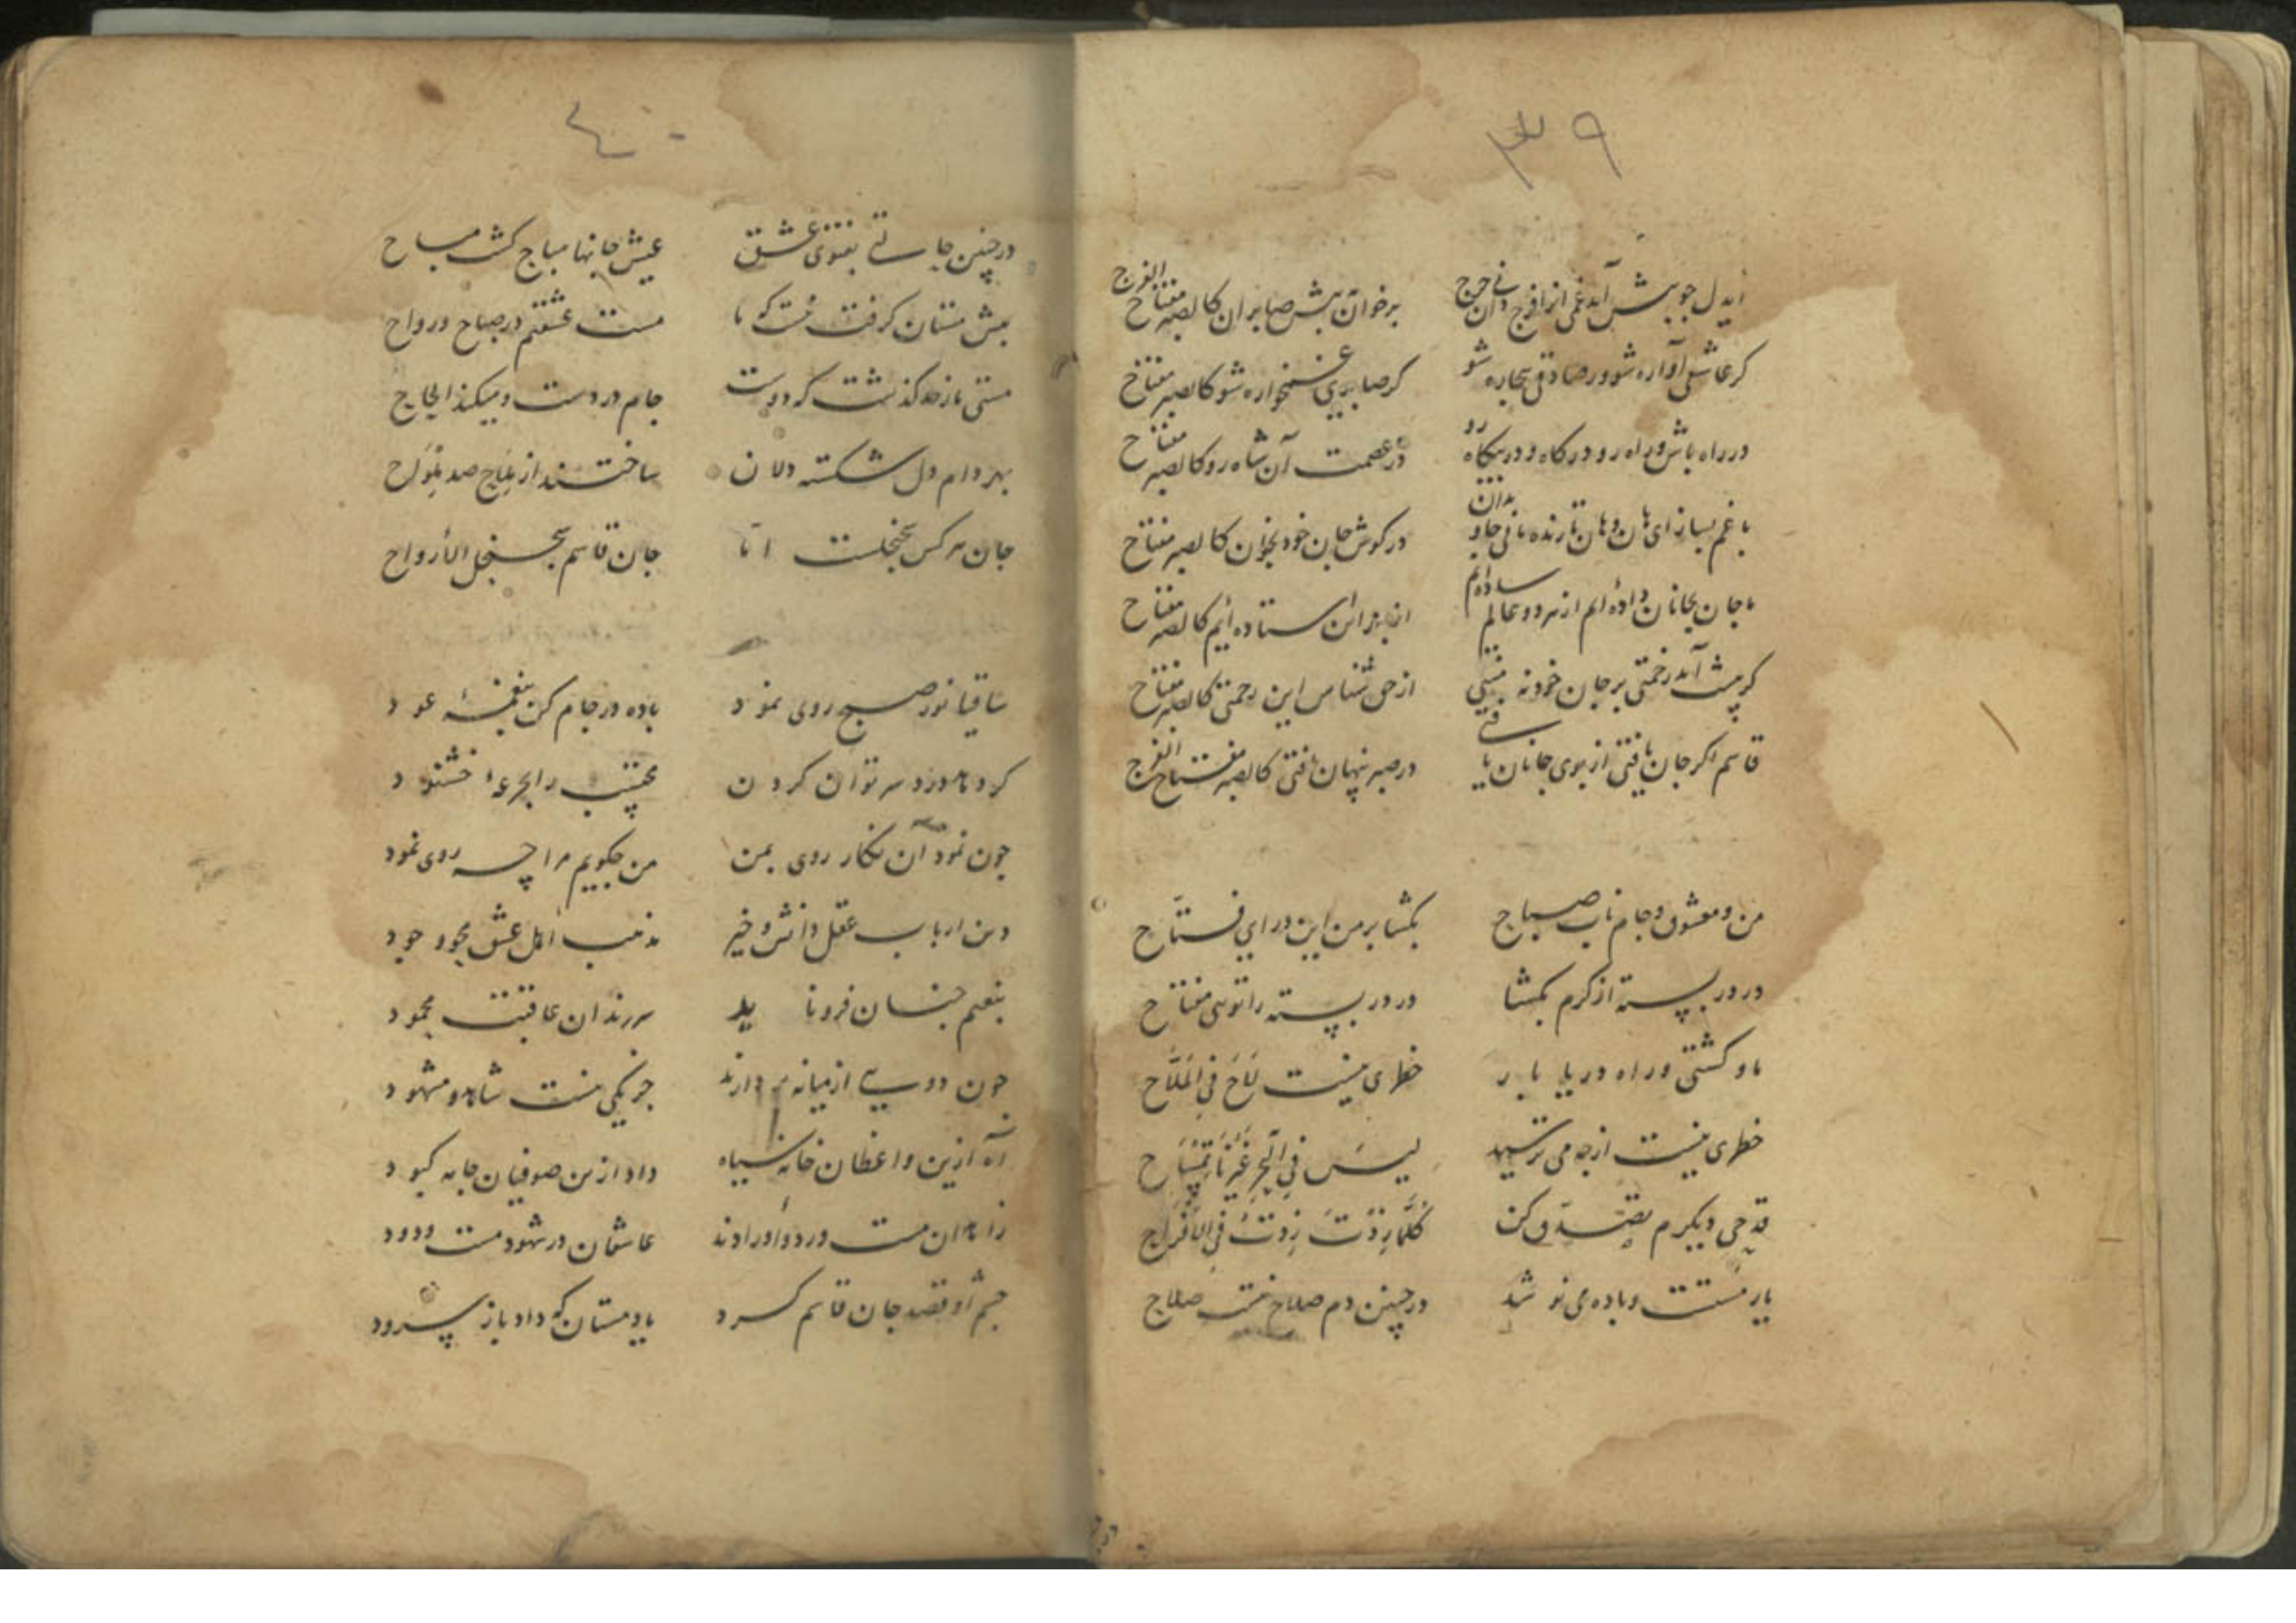 ۳۹
ایدل چو پیش آید غمی از افرج دانی حرج برخوان به پیش صابران کالصبر مفتاح الفرج
کر عاشقی آواره شو ور صادقی بیجاره شو کر صابری غمخواره شو کالصبر مفتاح
در راه باش و راه رو درکاه و در بیکاه رو در عصمت آن شاه رو کالصبر مفتاح
با غم بساز ای هان و هان تا زنده مانی جاودان در کوش جان خود بخوان کالصبر مفتاح
ما جان بجانان داده‌ایم از هر دو عالم ساده‌ایم از بهر آن استاده‌ایم کالصبر مفتاح
کر پیشت آید زحمتی بر جان خود نه منتی از حق شناس این رحمتی کالصبر مفتاح
قاسم اکر جان یافتی از بوی جانان یافتی در صبر پنهان یافتی کالصبر مفتاح الفرج
من و معشوق و جام ناب صباح بکشا بر من این در ای فتّاح
در در بسته از کرم بکشا در در بسته را تویی مفتاح
ما و کشتی و راه دریا بار خطری نیست لاح فی الملّاح
خطری نیست از جه می ترسید لیس فی البحر غیرنا تمساح
قدحی دیکرم تصدّق کن کلّما زدت زدت فی الافراح
یار مستست و باده می نوشد در چنین دم صلاح نیست صلاح
۴۰
در چنین حالتی بفتوی عشق عیش جانها مباح کشت مباح
پیش مستان کرفت نیست که ما مست عشقیم در صباح و رواح
مستی ما ز حد کذشت که دوست جام در دست و میکند الحاح
بهر دام دل شکسته دلان ساختند از ملاح صد ملواح
جان هر کس سجنجلست امّا جان قاسم سجنجل الأرواح
ساقیا نور صبح روی نمود باده در جام کن بنغمهٔ عود
کرد ما دزد سر توان کردن محتسب را بجرعهٔ خشنود
جون نمود آن نکار روی بمن من جکویم مرا چه روی نمود
دین ارباب عقل دانش و خیر مذهب اهل عشق بجود وجود
بنعیم جنان فرو ناید سر رندان عاقبت محمود
جون دویی از میانه بردارند جز یکی نیست شاهد و مشهود
آه ازین واعظان خانه سیاه داد ازین صوفیان جامه کبود
زاهدان مست ورد و اورادند عاشقان در شهود مست ودود
جشم او قصد جان قاسم کرد یاد مستان که داد باز سرود